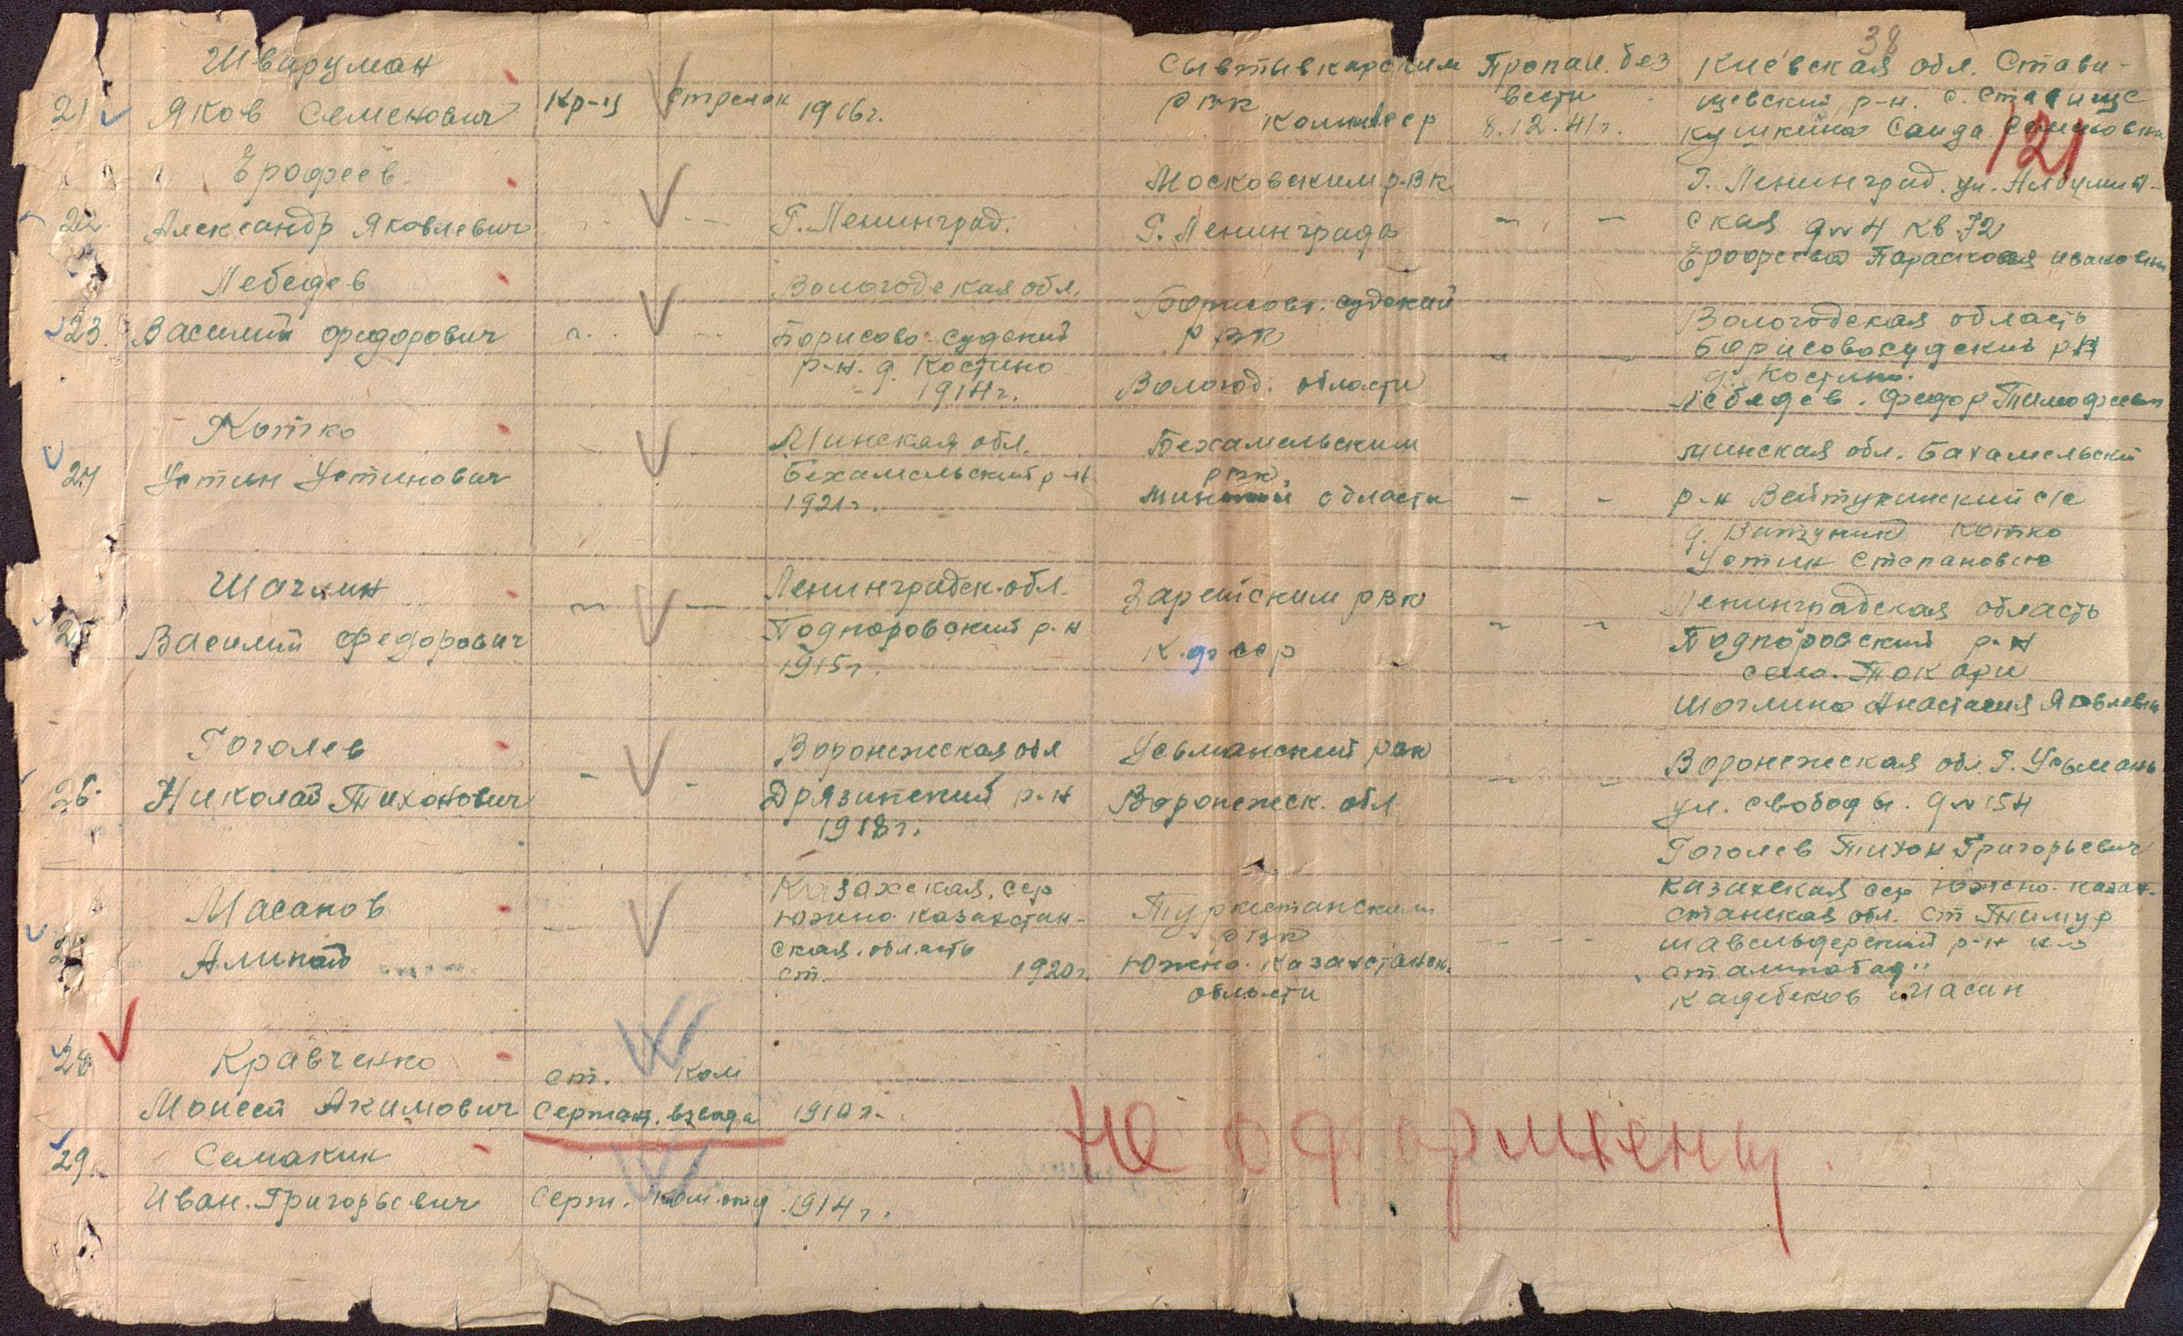 38
Шварцман
21 Яков Семенович Кр-ц Стрелок 1916г.
Сывтывкарским
РВК
Коми АССР
Пропал. без
вести
8.12.41г.
Киевская обл. Стави-
щевский р-н. с. Ставище
Кушкина Саида Семеновна
121
Ерофеев
22 Александр Яковлевич
Г. Ленинград.
Московским р.в.к.
Г. Ленинграда
Г. Ленинград. ул.
ская д № 4 кв. 72
Ерофеева Парасковя Ивановна
Лебедев
23. Василий Федорович
Вологодская обл.
Борисово-Судский
р-н. д. Костино
1914г.
Борисово. Судский
РВК
Вологод. области
Вологодская область
Борисовосудский р-н
д. Костино.
Лебедев. Федор Тимофеевич
Котко
24 Устин Устинович
Минская обл.
Бехамельский р-н
1921г.
Бехамельским
РВК
Минской области
Минская обл. Бахамельский
р-н Вейтунинский с/с
д. Витунии Котко
Устин Степанович
Шаглин
25 Василий Федорович
Ленинградск. обл.
Подпоровский р-н
1915г.
Зарецским РВК
К.ф ССР
Ленинградская область
Подпоровский р-н
село. Токари
Шаглина Анастасия Яковлевна
Гоголев
26. Николай Тихонович
Воронежская обл
Дрязгинский р-н
1918г.
Усьманский РВК
Воронежск. обл.
Воронежская обл. Г. Усьмань
ул. Свободы. д № 154
Гоголев Тихон Григорьевич
Масаков
27 Алипай
Казахская. ССР
Южно-Казахстан-
ская. область
ст. 1920г.
Туркестанским
РВК
Южно-Казахстанск.
области
Казахская ССР Южно-Казах-
станская обл. ст Тимур
Шавельдерский р-н к-з
Сталинабад"
Кадебеков Масан
Кравченко
28 Моисей Акимович
Ст. Ком
Сержан. взвода 1910г.
Не оформлены.
Семакин
29. Иван. Григорьевич Серж. Ком. отд. 1914г.